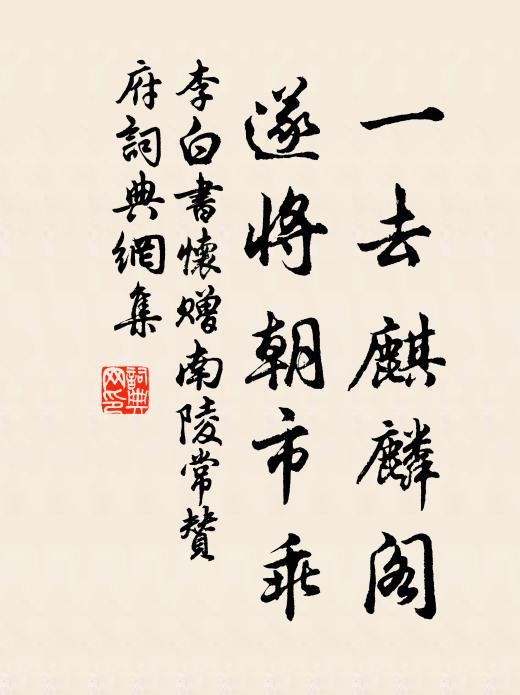 一去麒麟阁
遂将朝市乖
李白書懷贈南陵常贊
府詞典網集
詞典
网印